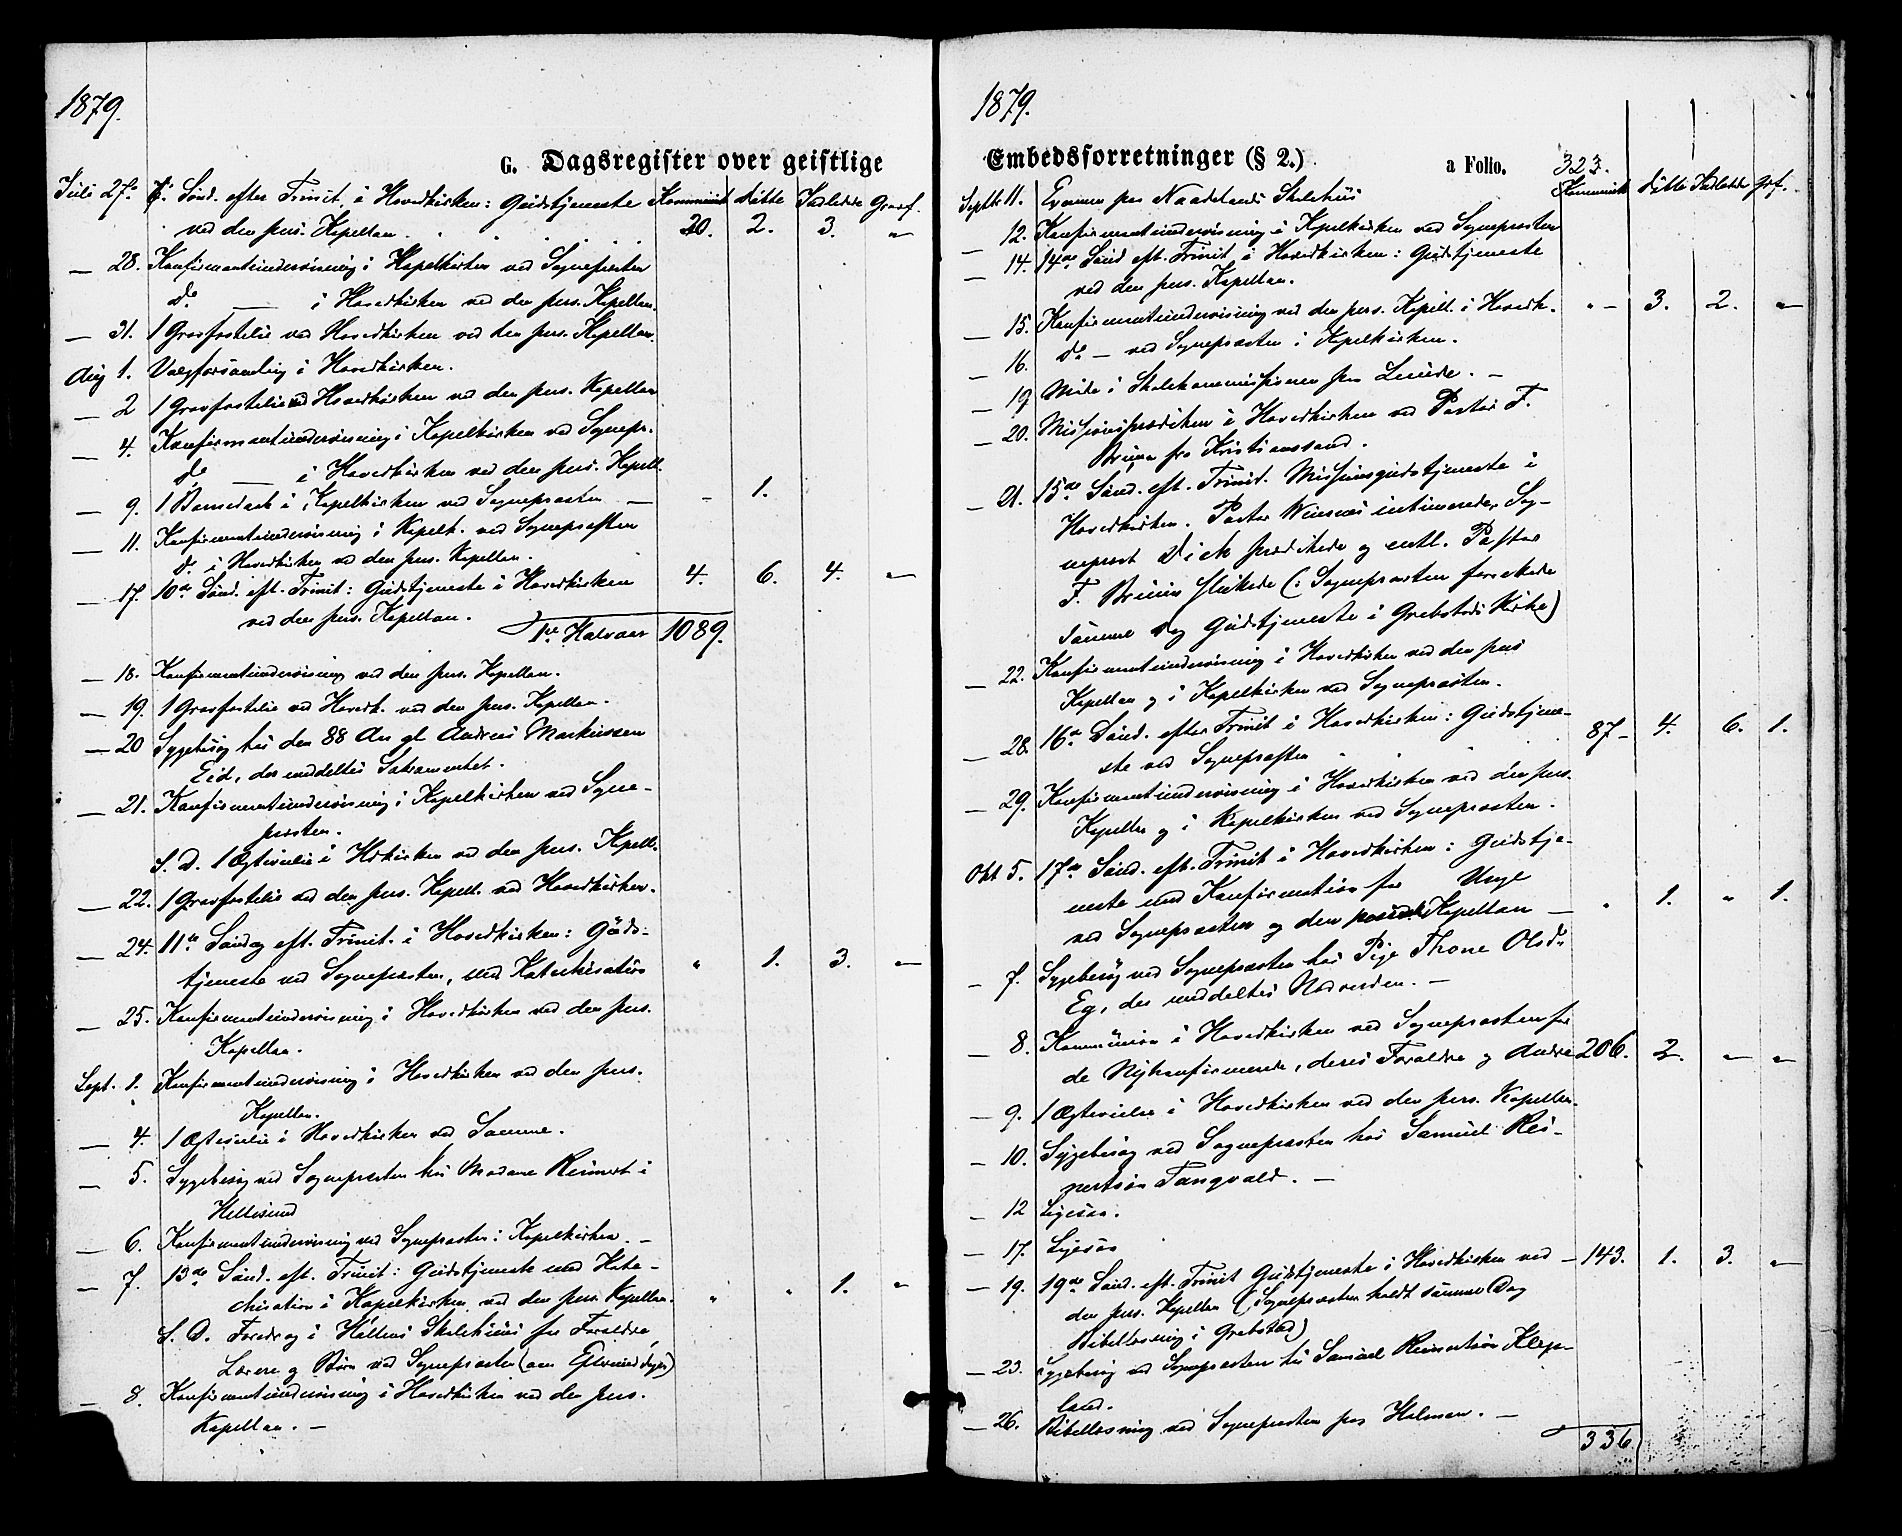 1879.
G. Dagsregister over geistlige
Juli 27de 7de Sønd. efter Trinit. i Hovedkirken: Gudstjeneste Kommunik Døbte Indledde Gravf.
ved den pers. Kapellan. 20. 2. 3. "
— 28. Konfirmantundervisning i Kapelkirken ved Sognepresten
do — i Hovedkirken ved den pers. Kapellan.
— 31. 1 Gravfæstelse ved Hovedkirken ved den pers. Kapellan
Aug 1. Valgforsamling i Hovedkirken.
— 2 1 Gravfæstelse ved Hovedkirken ved den pers. Kapellan
— 4. Konfirmantundervisning i Kapelkirken ved Sognepr.
do — i Hovedkirken ved den pers. Kapell.
— 9. 1 Barnedaab i Kapelkirken ved Sognepræsten — - 1.
— 11. Konfirmantundervisning i Kapelk. ved Sognepresten
do i Hovedkirken ved den pers. Kapellan.
— 17. 10de Sønd. eft. Trinit: Gudstjeneste i Hovedkirken 4. 6. 4. "
ved den pers. Kapellan.
1ste Halvaar 1089.
— 18. Konfirmantundervisning ved den pers. Kapellan.
— 19. 1 Gravfæstelse ved Hovedk. ved den pers. Kapellan.
— 20 Sygebesøg hos den 88 Aar gl Andreas Markussen
Eid, der meddeltes Sakramentet.
— 21. Konfirmantundervisning i Kapelkirken ved Sogne-
præsten.
S. D. 1 Ægtevielse i Hdkirken ved den pers. Kapell.
— 22. 1 Gravfæstelse ved den pers. Kapell. ved Hovedkirken.
— 24. 11te Søndag eft. Trinit. i Hovedkirken: Guds-
tjeneste ved Sognepræsten, med Katechisation " 1. 3. "
— 25. Konfirmantundervisning i Hovedkirken ved den pers.
Kapellan.
Sept. 1. Konfirmantundervisning i Hovedkirken ved den pers.
Kapellan.
— 4. 1 Ægtevielse i Hovedkirken ved Samme.
— 5. Sygebesøg ved Sognepræsten hos Madame Reinert i
Hellesund
— 6. Konfirmantundervisning ved Sognepræsten i Kapelkirken. —
— 7. 13de Sønd. eft. Trinit: Gudstjeneste med Kate-
chisation i Kapelkirken ved den pers. Kapellan. " " 1. "
S. D. Foredrag i Høllens Skolehuus for Forældre
Lærere og Børn ved Sognepræsten (om Eftermiddagen)
— 8. Konfirmantundervisning i Hovedkirken ved den pers.
Kapellan. —
1879.
Embedsforretninger (§ 2.) a Folio. 323.
Kommunik Døbte Indledde Grf.
Septbr 11. Examen paa Naadelands Skolehuus
— 12. Konfirmantundervisning i Kapelkirken ved Sognepræsten
— 14. 14de Sønd eft. Trinit i Hovedkirken: Gudstjeneste
ved den pers. Kapellan. " 3. 2. "
— 15. Konfirmantundervisning ved den pers. Kapell. i Hovedk.
— 16. do — ved Sognepræsten i Kapelkirken.
— 19 Møde i Skolekommissionen paa Lunde. —
— 20. Missionsprædiken i Hovedkirken ved Pastor F.
Bruun fra Kristianssand.
— 21. 15de Sønd. eft. Trinit. Missionsgudstjeneste i
Hovedkirken. Pastor Winsnes intimerede, Sog-
neprest Dick prædikede og endl. Pastor
F. Bruun sluttede (: Sognepræsten forrettede
samme Dag Gudstjeneste i Grebstads Kirke)
— 22. Konfirmantundervisning i Hovedkirken ved den pers
Kapellan og i Kapelkirken ved Sognepræsten.
— 28. 16de Sønd. efter Trinit i Hovedkirken: Gudstjene-
ste ved Sognepræsten 87 — 4. 6. 1.
— 29. Konfirmantundervisning i Hovedkirken ved den pers.
Kapellan og i Kapelkirken ved Sognepræsten.
Okt 5. 17de Sønd. eft. Trinit i Hovedkirken: Gudstje-
neste med Konfirmation for Unge
ved Sognepræsten og den Kapellan — " 1. " 1.
— 7. Sygebesøg ved Sognepræsten hos Pige Thone Olsdr
Eg, der meddeltes Nadverden. —
— 8. Kommunion i Hovedkirken ved Sognepræsten for
de Nykonfirmerede, deres Forældre og Andre 206. 2. " "
— 9. 1 Ægtevielse i Hovedkirken ved den pers. Kapellan.
— 10. Sygebesøg ved Sognepræsten hos Samuel Rei-
nertsen Tangvald. —
— 12 Ligesaa.
— 17. Ligesaa
— 19. 19de Sønd. eft. Trinit Gudstjeneste i Hovedkirken ved — 143. 1. 3. "
den pers. Kapellan (Sognepræsten holdt samme Dag
Bibellæsning i Grebstad)
— 23. Sygebesøg ved Sognepræsten hos Samuel Reinertsen Klep-
land.
— 26. Bibellæsning ved Sognepræsten paa Holmen. —
336